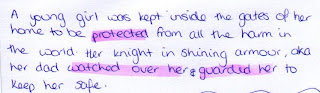 A young girl was kept inside the gates of her
home to be protected from all the harm in
the world. Her knight in shining armour, aka
her dad watched over her & guarded her to
keep her safe.